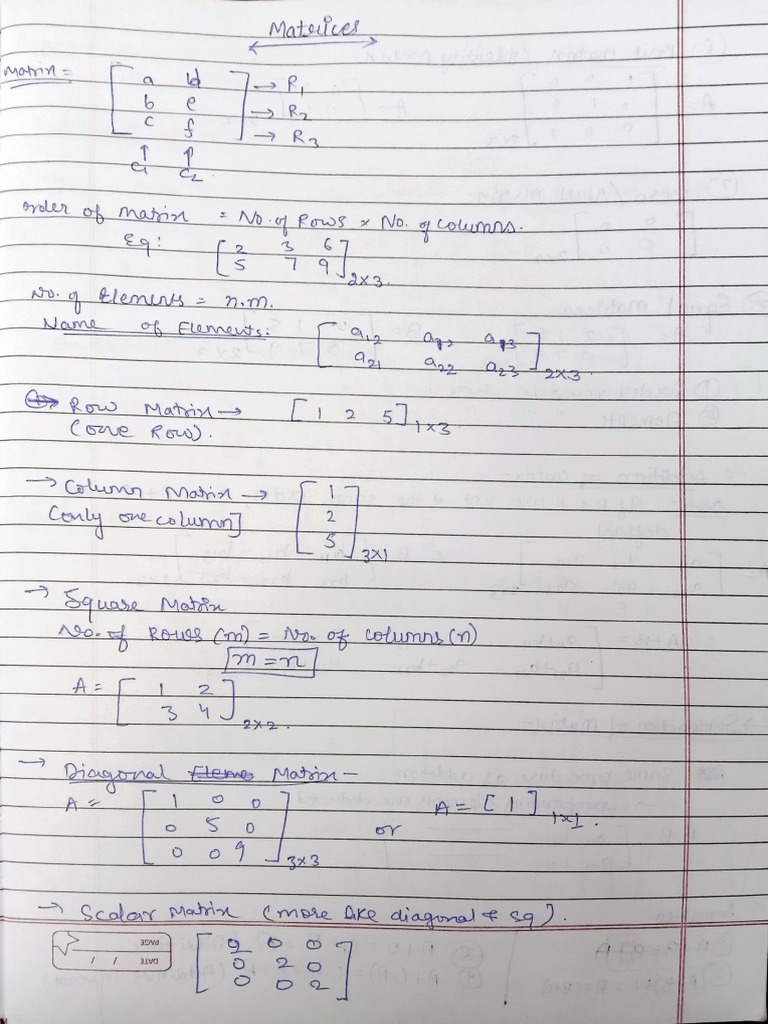 Matrices
Matrix = [ a d ] → R1
b e → R2
c f → R3
↑ ↑
c1 c2
order of matrix = No. of Rows × No. of columns.
Eg: [ 2 3 6
5 7 9 ] 2×3.
No. of Elements = n.m.
Name of Elements: [ a12 a12 a13
a21 a22 a23 ] 2×3.
Row Matrix → [ 1 2 5 ] 1×3
(one Row).
→ Column Matrix → [ 1
(only one column] 2
5 ] 3×1
→ Square Matrix
No. of Rows (m) = No. of columns (n)
m = n
A = [ 1 2
3 4 ] 2×2.
→ Diagonal Matrix –
A = [ 1 0 0
0 5 0
0 0 9 ] 3×3
or A = [ 1 ] 1×1.
→ Scalar Matrix (more like diagonal & sq).
[ 2 0 0
0 2 0
0 0 2 ]
PAGE
DATE / /